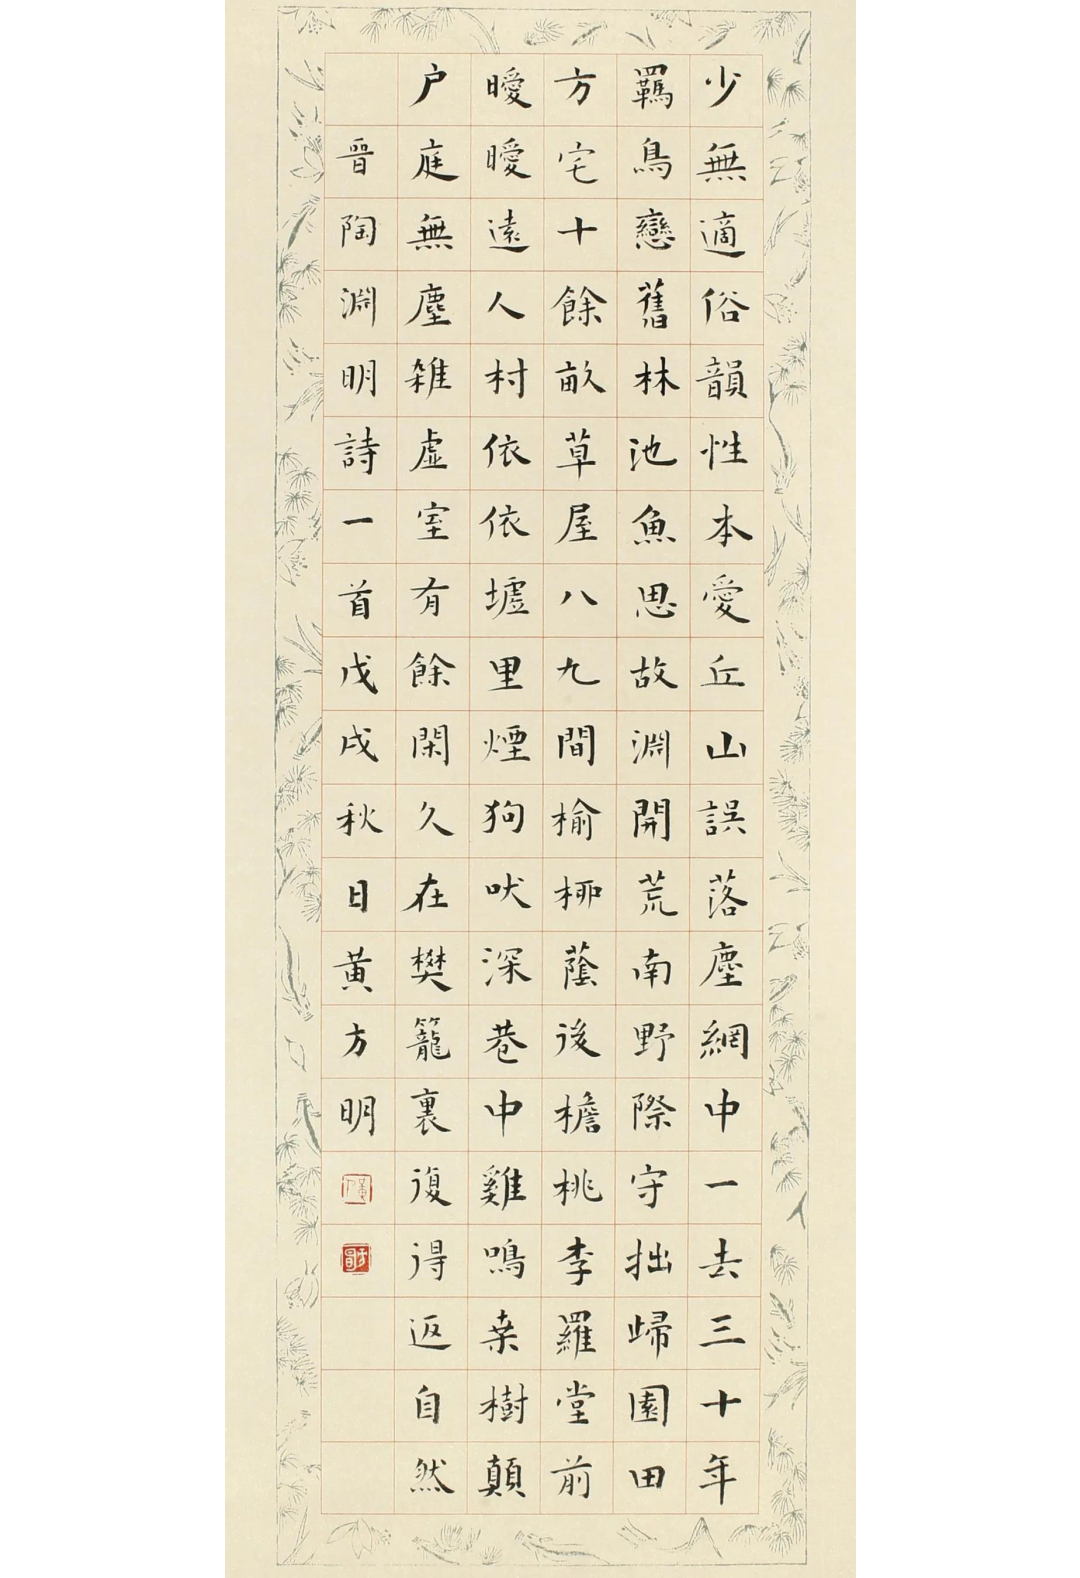 少無適俗韻性本愛丘山誤落塵網中一去三十年
羈鳥戀舊林池魚思故淵開荒南野際守拙歸園田
方宅十餘畝草屋八九間榆柳蔭後檐桃李羅堂前
曖曖遠人村依依墟里煙狗吠深巷中雞鳴桑樹顛
户庭無塵雜虛室有餘閑久在樊籠裏復得返自然
晉陶淵明詩一首戊戌秋日黃方明